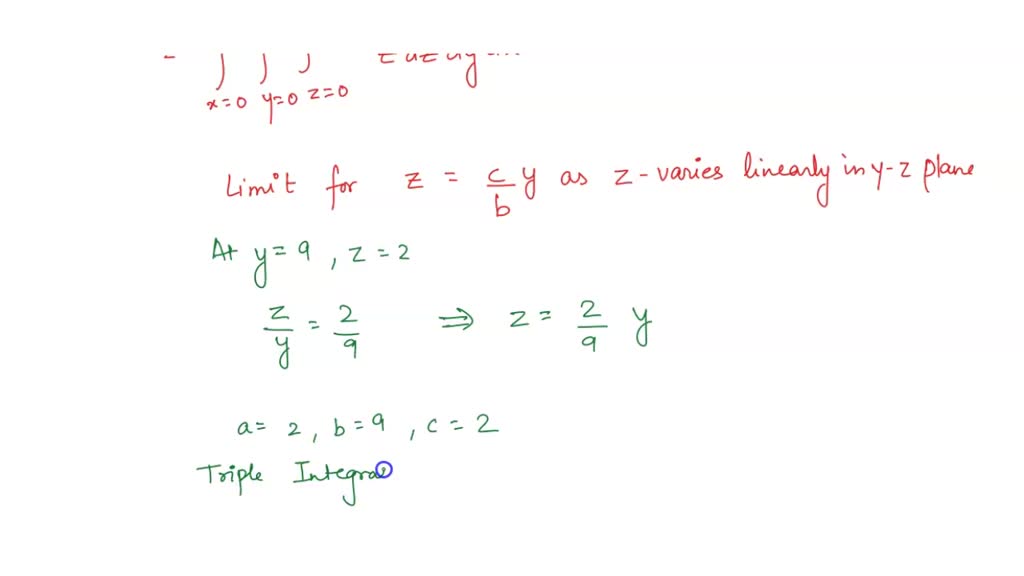 x=0 y=0 z=0
Limit for z = c/b y as z-varies linearly in y-z plane
At y=9, z=2
z/y = 2/9 ⇒ z = 2/9 y
a= 2, b=9, c=2
Triple Integra